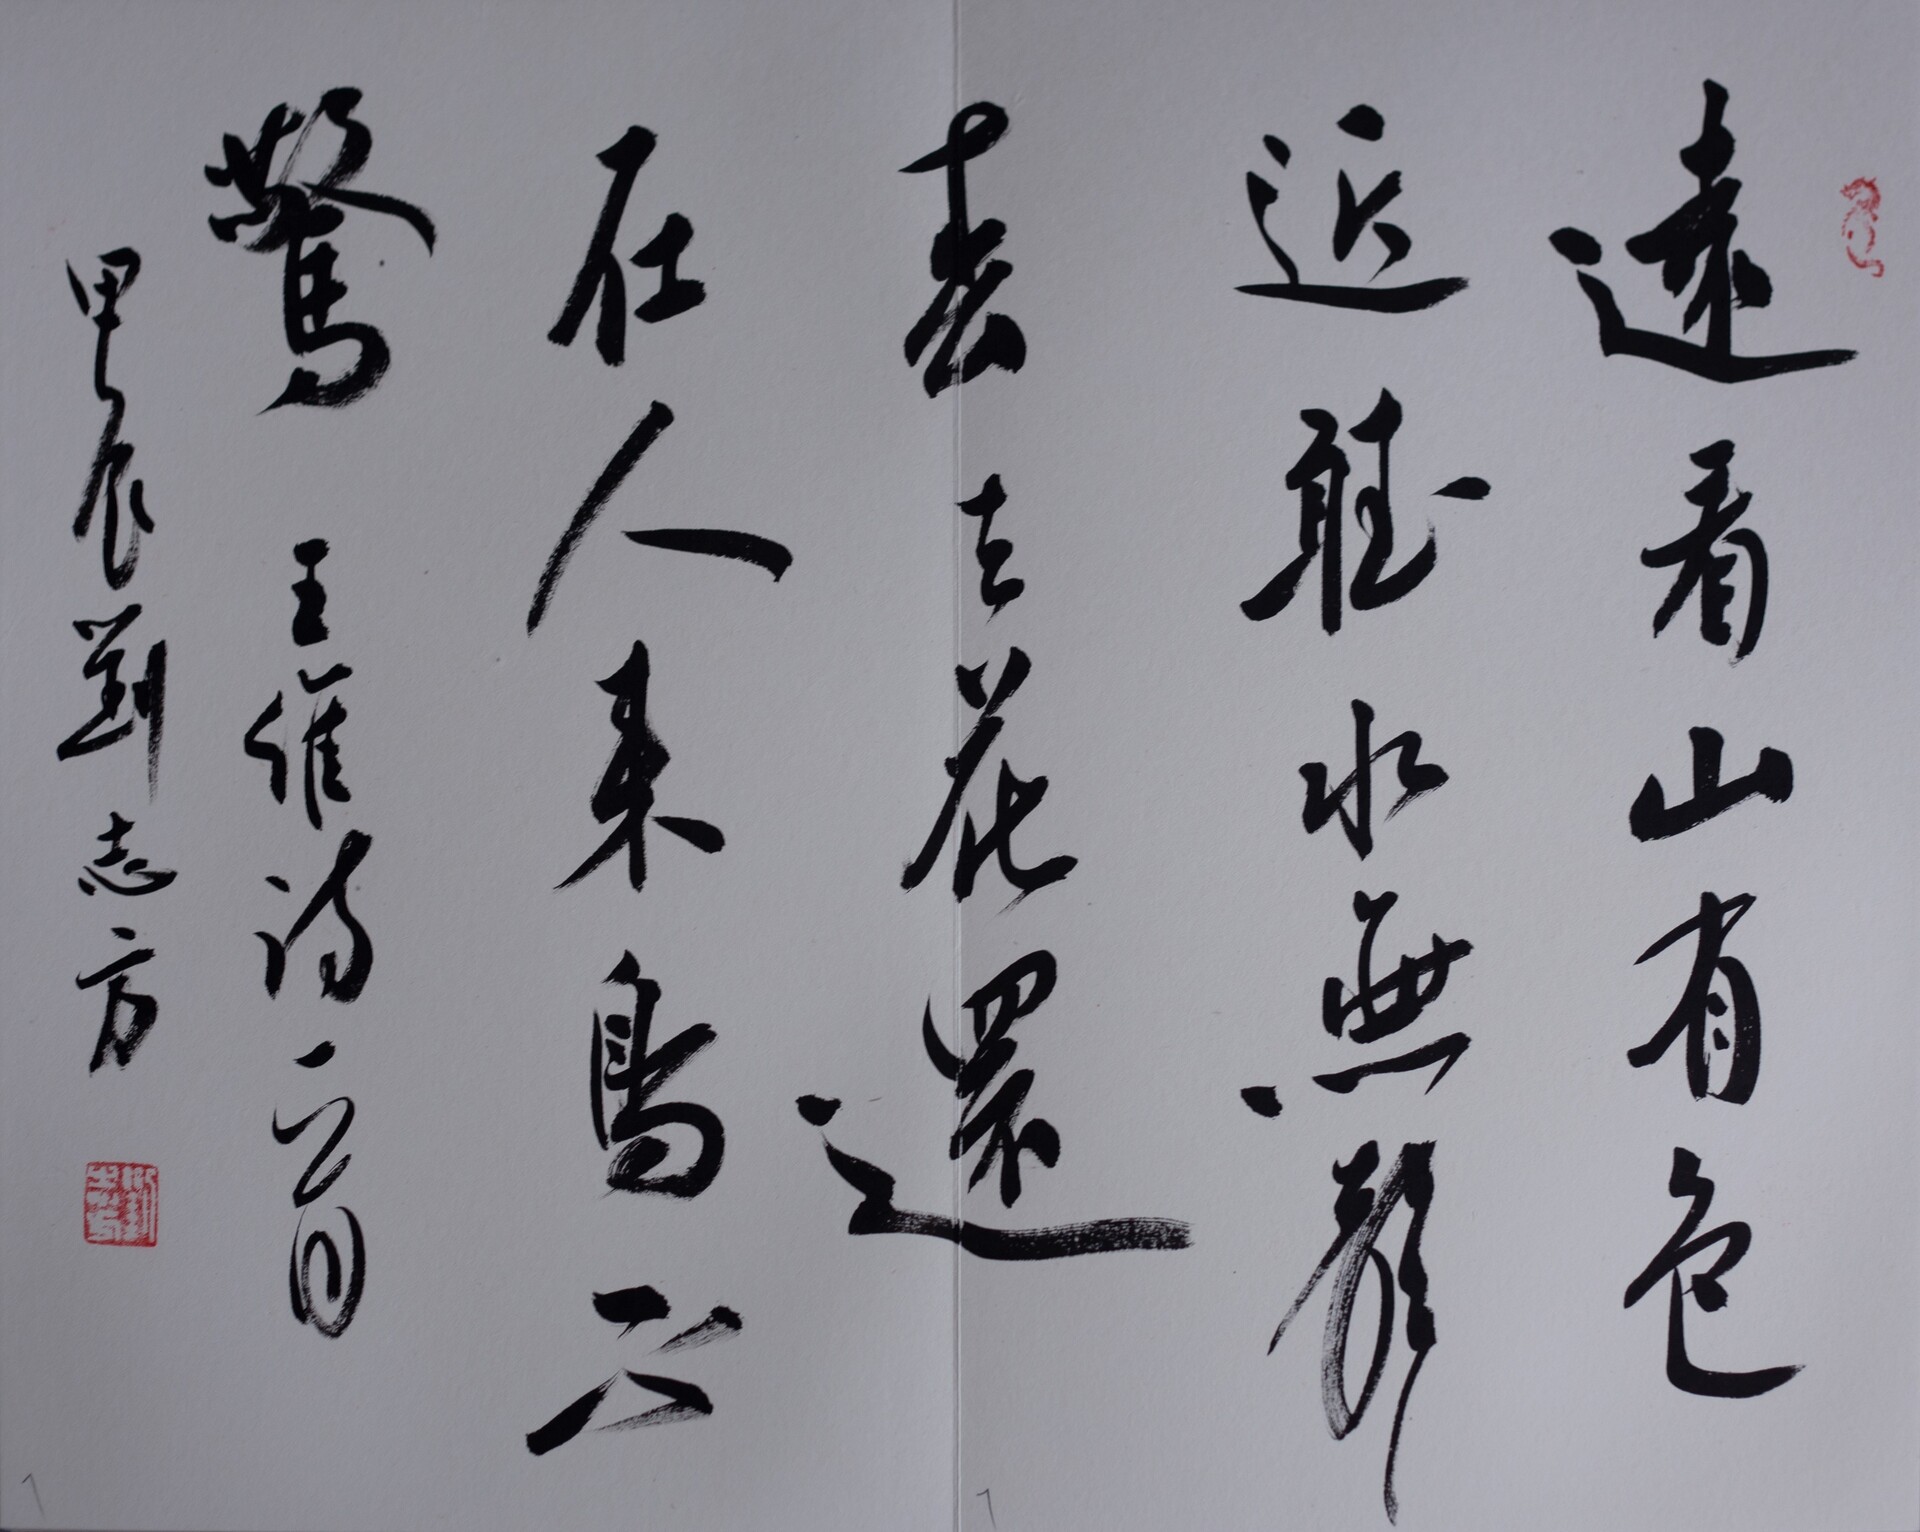 遠看山有色
近聽水無聲
春去花還
在人来鳥不
驚 王維詩一首
甲辰劉志方